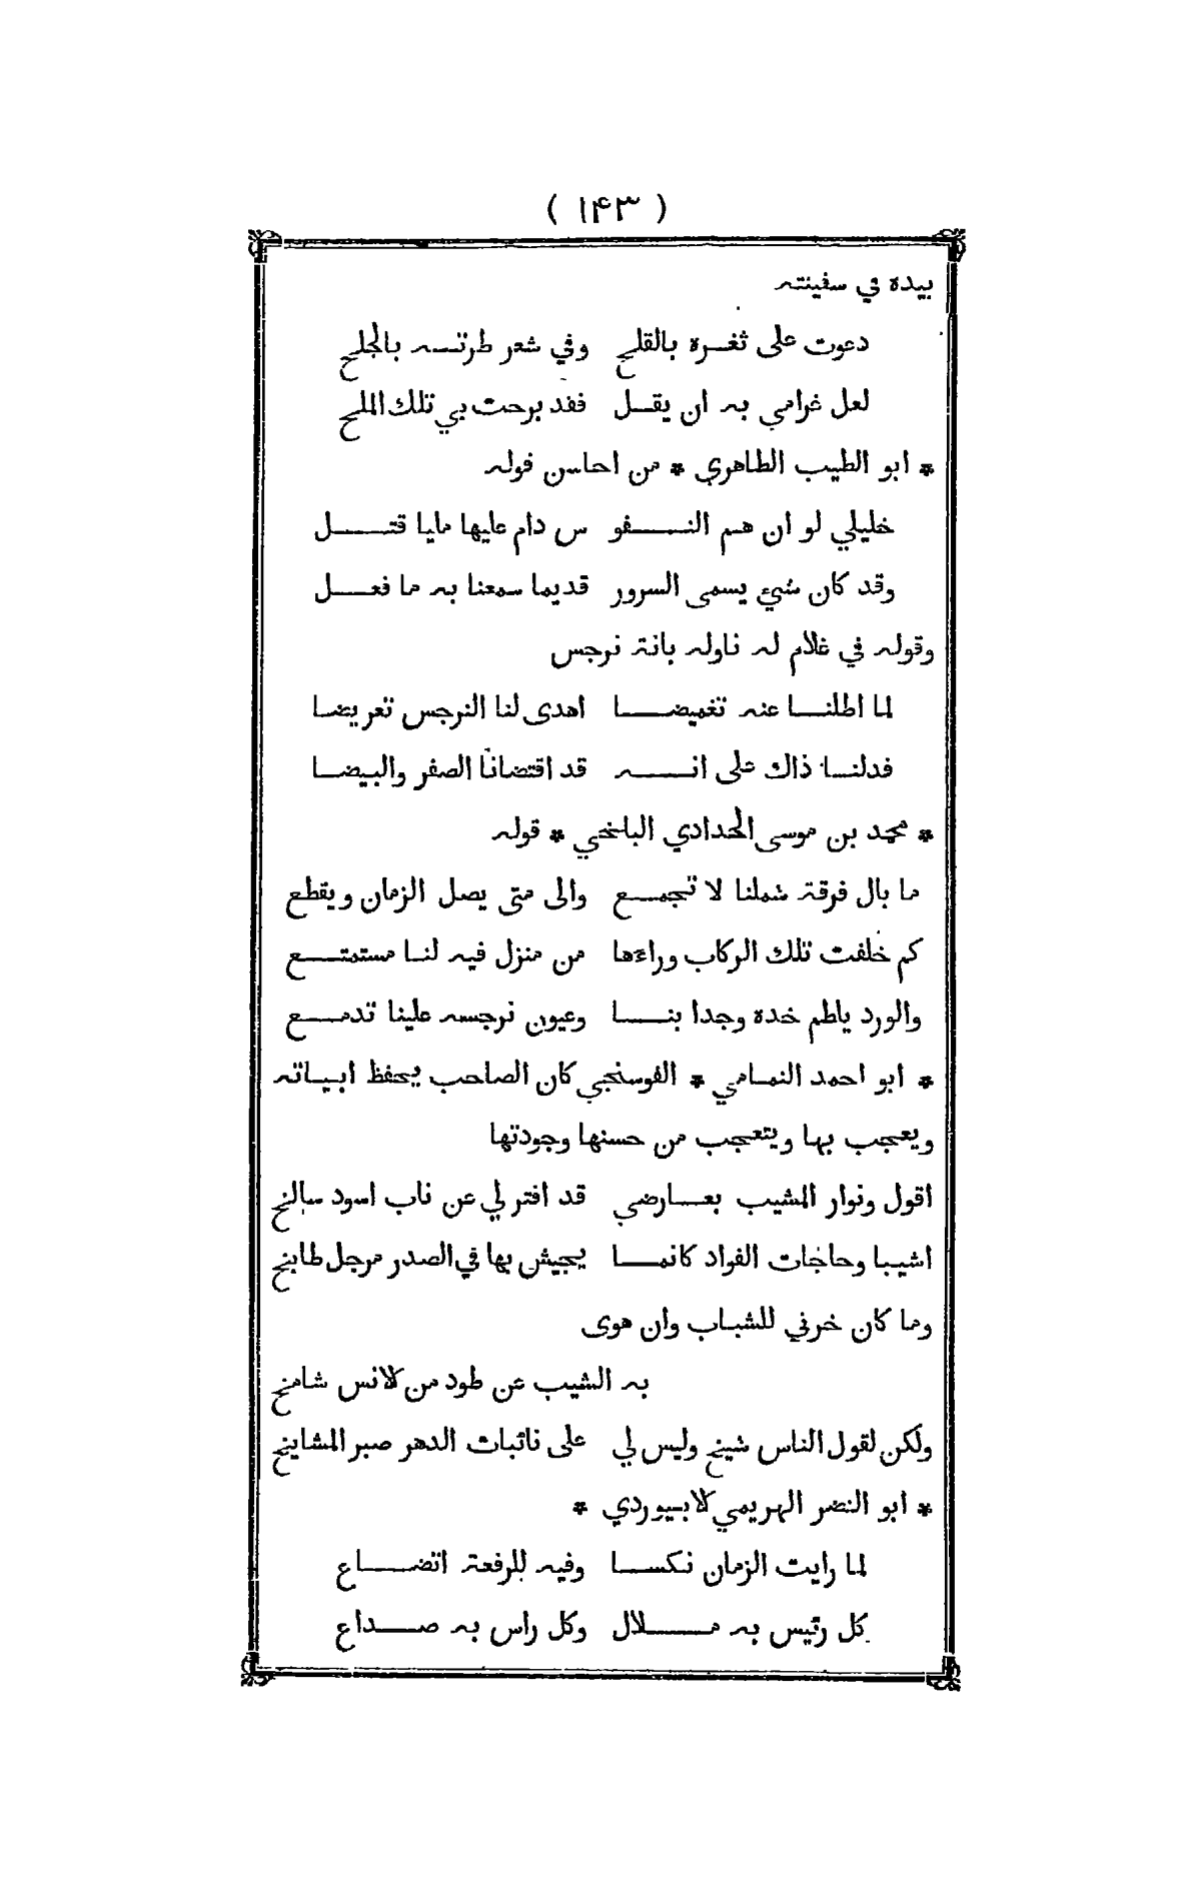 ( ١۴٣ )
بيده في سفينته
دعوت على ثغره بالقلح وفي شعر طرتــه بالجلح
لعل غرامي به ان يقــل فقد برحت بي تلك الملح
* ابو الطيب الطاهري * من احاسن قوله
خليلي لو ان هم النــفو س دام عليها مليا قتــل
وقد كان شيء يسمى السرور قديما سمعنا به ما فعــل
وقوله في غلام له ناوله بانة نرجس
لما اطلنــا عنه تغميضــا اهدى لنا النرجس تعريضا
فدلنــا ذاك على انــه قد اقتضانا الصفر والبيضا
* محمد بن موسى الحدادي البلخي * قوله
ما بال فرقة شملنا لا تجمــع والى متى يصل الزمان ويقطع
كم خلفت تلك الركاب وراءها من منزل فيه لنــا مستمتــع
والورد ياطم خده وجدا بنــا وعيون نرجسه علينا تدمــع
* ابو احمد النمامي * الفوسنجي كان الصاحب يحفظ ابياته
ويعجب بها ويتعجب من حسنها وجودتها
اقول ونوار المشيب بعــارضي قد افتر لي عن ناب اسود سالخ
اشيبا وحاجات الفواد كانمــا يجيش بها في الصدر مرجل طابخ
وما كان خرني للشباب وان هوى
به الشيب عن طود من الانس شامخ
ولكن لقول الناس شيخ وليس لي على نائبات الدهر صبر المشايخ
* ابو النضر الهريمي الابيوردي *
لما رايت الزمان نكســا وفيه للرفعة اتضــاع
كل رئيس به مــلال وكل راس به صــداع